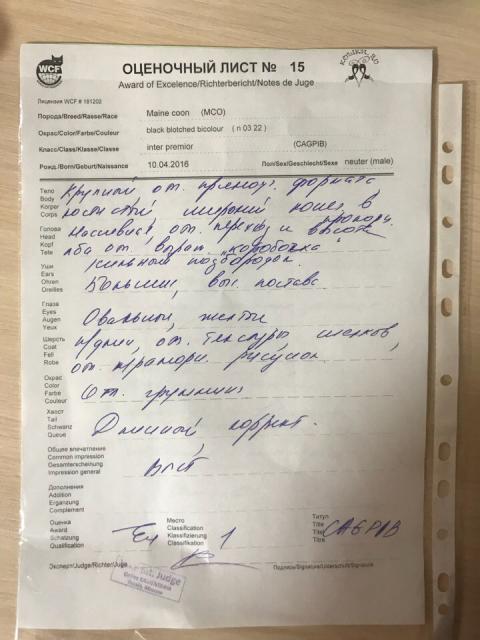 WCF
ОЦЕНОЧНЫЙ ЛИСТ № 15
КОШКИ.RU
Award of Excelence/Richterbericht/Notes de Juge
Лицензия WCF # 181202
Порода/Breed/Rasse/Race Maine coon (MCO)
Окрас/Color/Farbe/Couleur black blotched bicolour ( n 03 22 )
Класс/Class/Klasse/Classe inter premior (CAGPIB)
Рожд./Born/Geburt/Naissance 10.04.2016 Пол/Sex/Geschlecht/Sexe neuter (male)
Тело Крупный от. прямоуг. формата,
Body
Korper костистый широкий
Corps
Голова Массивная, от. переход и высота
Head
Kopf лба от. выраж. "коробочка"
Tete
сильный подбородок.
Уши
Ears Большие, выс. постава
Ohren
Oreilles
Глаза
Eyes Овальные, желтые
Augen
Yeux
Шерсть от. текстуры, шелков
Coat
Fell от. рисунок
Robe
Окрас
Color
Farbe От. груминг
Couleur
Хвост
Tail
Schwanz Длинный, коррект.
Queue
Общее впечатление
Common impression
Gesamterscheinung
Impression general
Дополнения
Addition
Erganzung
Complement
Оценка Место Титул
Award Classification Title
Schatzung Klassifizierung 1 Titel CAGPIB
Qualification Classifikation Titre
Эксперт/Judge/Richter/Juge Подпись/Signature/Unterschrift/Signature
Judge